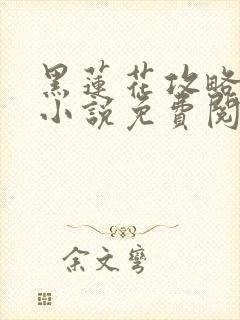 黑蓮花攻略
小說免費閱
余文彎